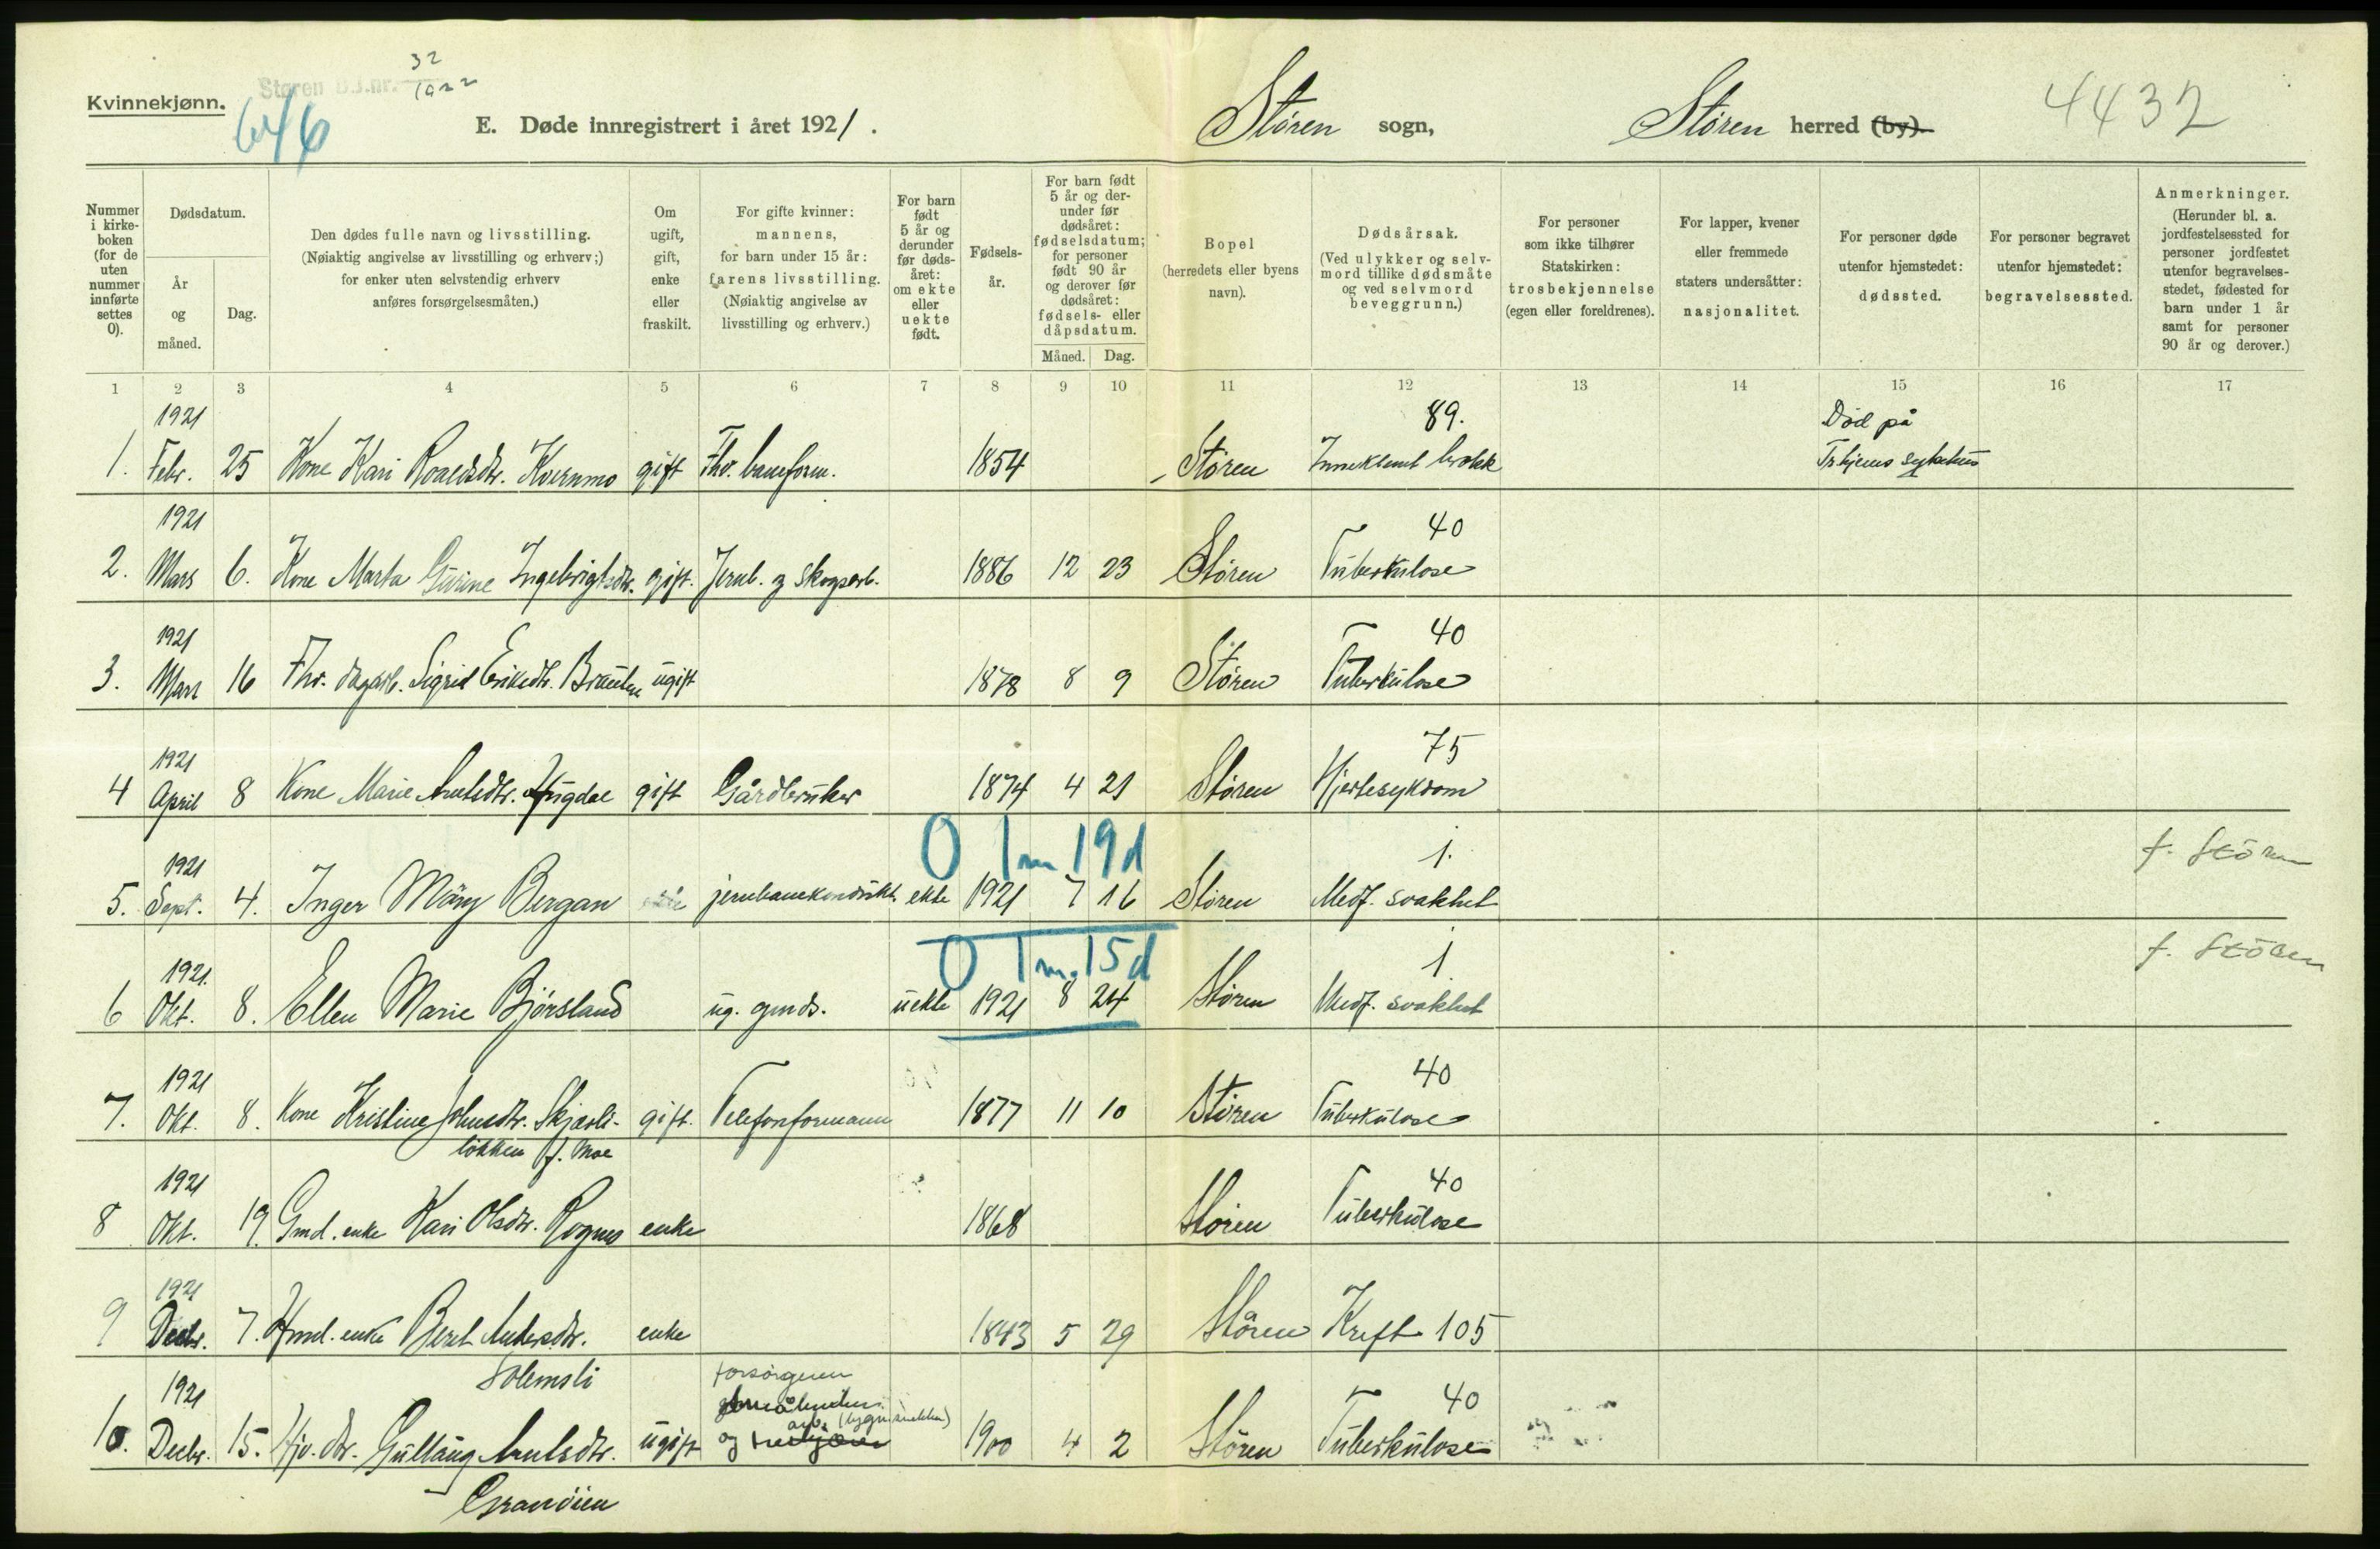 Kvinnekjønn.
Støren B.J.nr. 32
1922
646
E. Døde innregistrert i året 1921.
Støren sogn,
Støren herred (by).
4432
Nummer i kirkeboken (for de uten nummer innførte settes 0).
Dødsdatum.
År og måned.
Dag.
Den dødes fulle navn og livsstilling.
(Nøiaktig angivelse av livsstilling og erhverv;)
for enker uten selvstendig erhverv
anføres forsørgelsesmåten.)
Om ugift, gift, enke eller fraskilt.
For gifte kvinner: mannens,
for barn under 15 år: farens livsstilling.
(Nøiaktig angivelse av livsstilling og erhverv.)
For barn født 5 år og derunder før dødsåret: om ekte eller uekte født.
Fødselsår.
For barn født 5 år og derunder før dødsåret: fødselsdatum; for personer født 90 år og derover før dødsåret: fødsels- eller dåpsdatum.
Måned. Dag.
Bopel (herredets eller byens navn).
Dødsårsak.
(Ved ulykker og selvmord tillike dødsmåte og ved selvmord beveggrunn.)
For personer som ikke tilhører Statskirken: trosbekjennelse (egen eller foreldrenes).
For lapper, kvener eller fremmede staters undersåtter: nasjonalitet.
For personer døde utenfor hjemstedet: dødssted.
For personer begravet utenfor hjemstedet: begravelsessted.
Anmerkninger.
(Herunder bl. a. jordfestelsessted for personer jordfestet utenfor begravelsesstedet, fødested for barn under 1 år samt for personer 90 år og derover.)
1 2 3 4 5 6 7 8 9 10 11 12 13 14 15 16 17
1921 89. Død på
1. Febr. 25 Kone Kari Roaldsdtr. Kvernmo gift Fhv. baneform. 1854 Støren Inneklemt brokk Tr.hjems sykehus
1921 40
2. Mars 6. Kone Marta Gurine Ingebrigtsdtr. gift. Jernb. og skogsarb. 1886 12 23 Støren Tuberkulose
1921 40
3. Mars 16 Fhv. dagarb. Sigrid Eriksdtr. Brauten ugift 1878 8 9 Støren Tuberkulose
1921 75
4 April 8 Kone Marie Arntsdtr. Hugdal gift Gårdbruker 1874 4 21 Støren Hjertesykdom
0 1m 19d
1921 1. f. Støren
5. Sept. 4. Inger Märy Bergan jernbanekondukt. ekte 1921 7 16 Støren Medf. svakhet
0 1m. 15d
1921. 1. f. Støren
6 Okt. 8. Ellen Marie Bjørsland ug. gmds. uekte 1921 8 24 Støren Medf. svakhet
1921 40
7. Okt. 8. Kone Kristine Johnsdtr. Skjærli- gift. Telefonformann 1877 11 10 Støren Tuberkulose
løkken f. Moe
1921 40
8 Okt. 19. Gmd. enke Kari Olsdtr. Rogmo enke 1868 Støren Tuberkulose
1921
9 Decbr. 7. Hmd. enke Beret Andersdtr. enke 1843 5 29 Støren Kreft 105
Solemsli
forsørgeren
1921 arb. 40
10. Decbr. 15. Hjv. dtr. Gullaug Arntsdtr. ugift og 1900 4 2 Støren Tuberkulose
Granøien